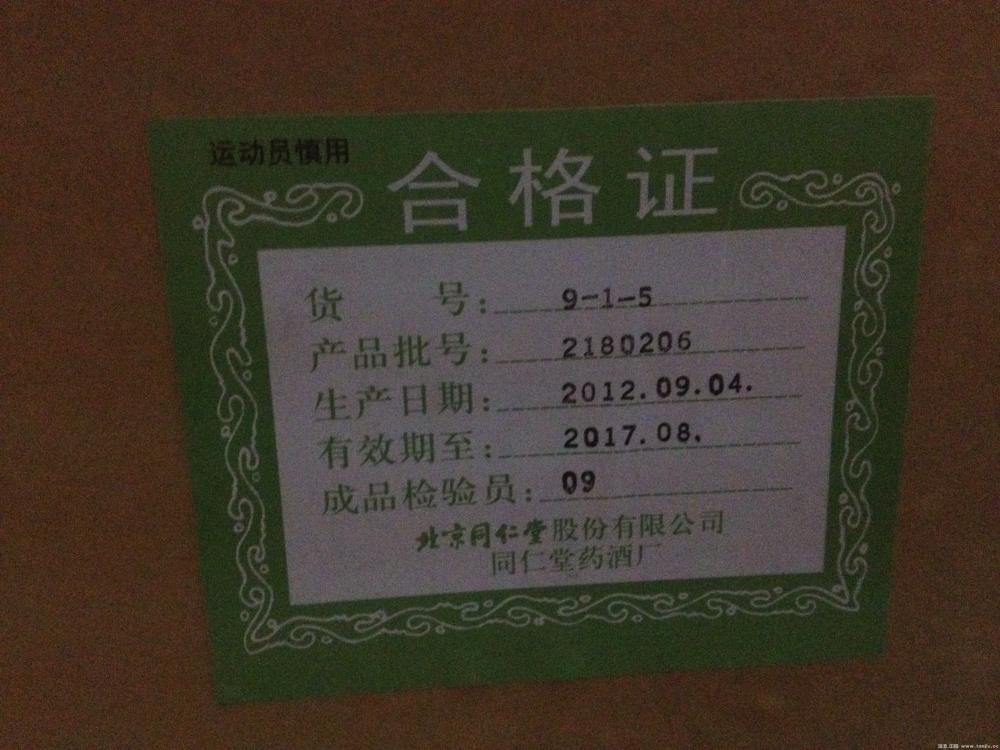 运动员慎用
合格证
货 号: 9-1-5
产品批号: 2180206
生产日期: 2012.09.04.
有效期至: 2017.08.
成品检验员: 09
北京同仁堂股份有限公司
同仁堂药酒厂